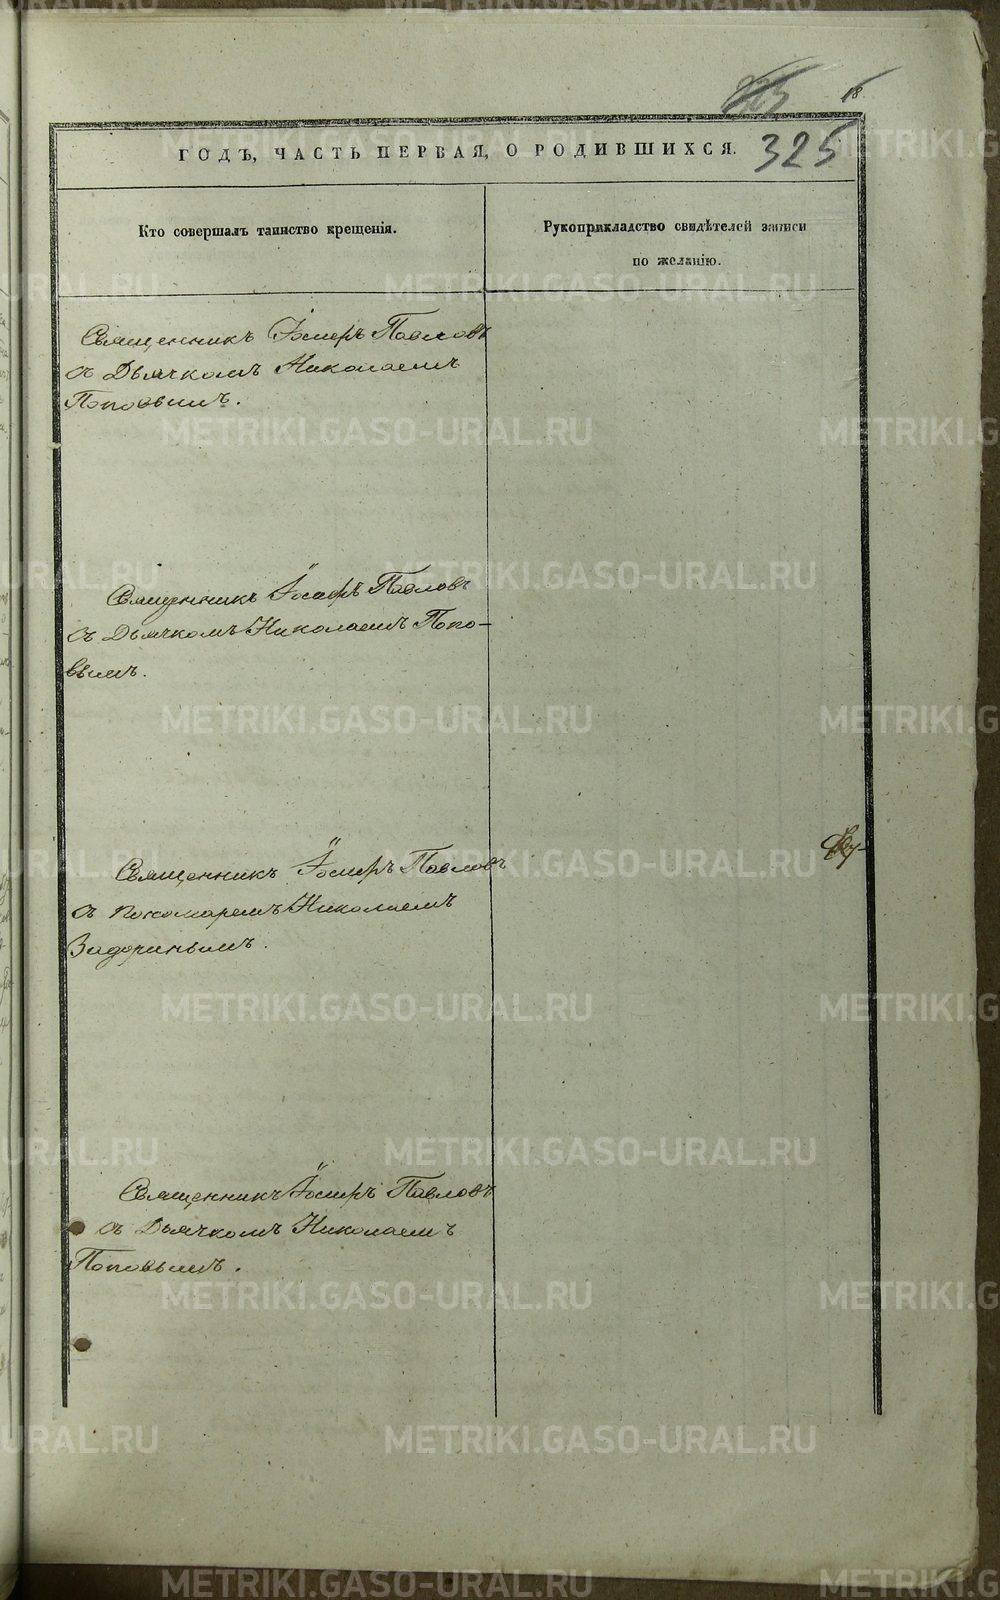 325
ГОДЪ, ЧАСТЬ ПЕРВАЯ, О РОДИВШИХСЯ.
Кто совершалъ таинство крещенія.
Рукоприкладство свидѣтелей записи
по желанію.
Священникъ Іосифъ Павловъ
съ Дьячкомъ Николаемъ
Поповымъ.
Священникъ Іосифъ Павловъ
съ Дьячкомъ Николаемъ Попо-
вымъ.
Священникъ Іосифъ Павловъ
съ пономаремъ Николаемъ
Задоринымъ.
Священникъ Іосифъ Павловъ
съ Дьячкомъ Николаемъ
Поповымъ.
METRIKI.GASO-URAL.RU